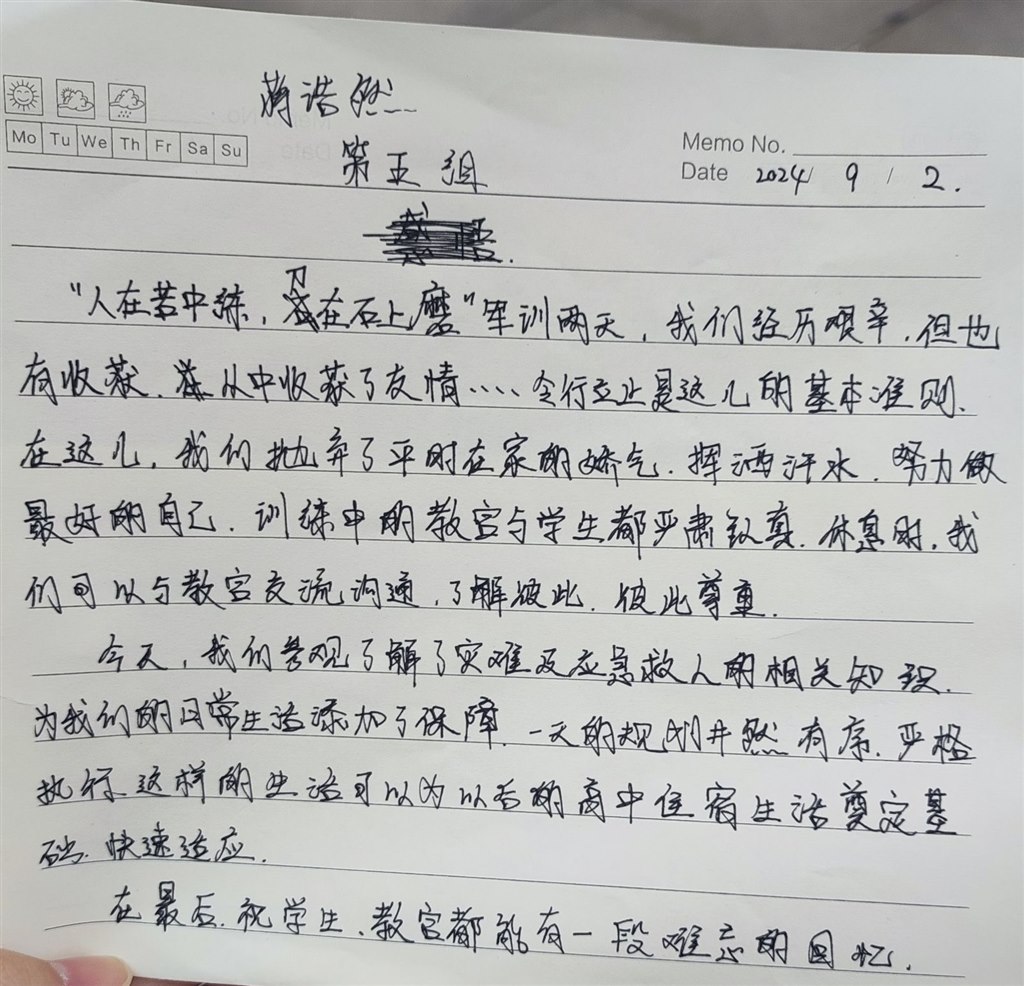 蒋浩然
Mo Tu We Th Fr Sa Su
Memo No.
第五组
Date 2024/ 9 / 2.
"人在苦中练,刀在石上磨"军训两天,我们经历艰辛.但也
有收获.从中收获了友情….令行立止是这儿的基本准则.
在这儿,我们抛弃了平时在家的娇气.挥洒汗水.努力做
最好的自己.训练中的教官与学生都严肃认真.休息时,我
们可以与教官交流沟通,了解彼此.彼此尊重.
今天,我们参观了解了灾难及应急救人的相关知识.
为我们的日常生活添加了保障.一天的规划井然有序.严格
执行.这样的生活可以为以后的高中住宿生活奠定基
础.快速适应.
在最后.祝学生、教官都能有一段难忘的回忆.